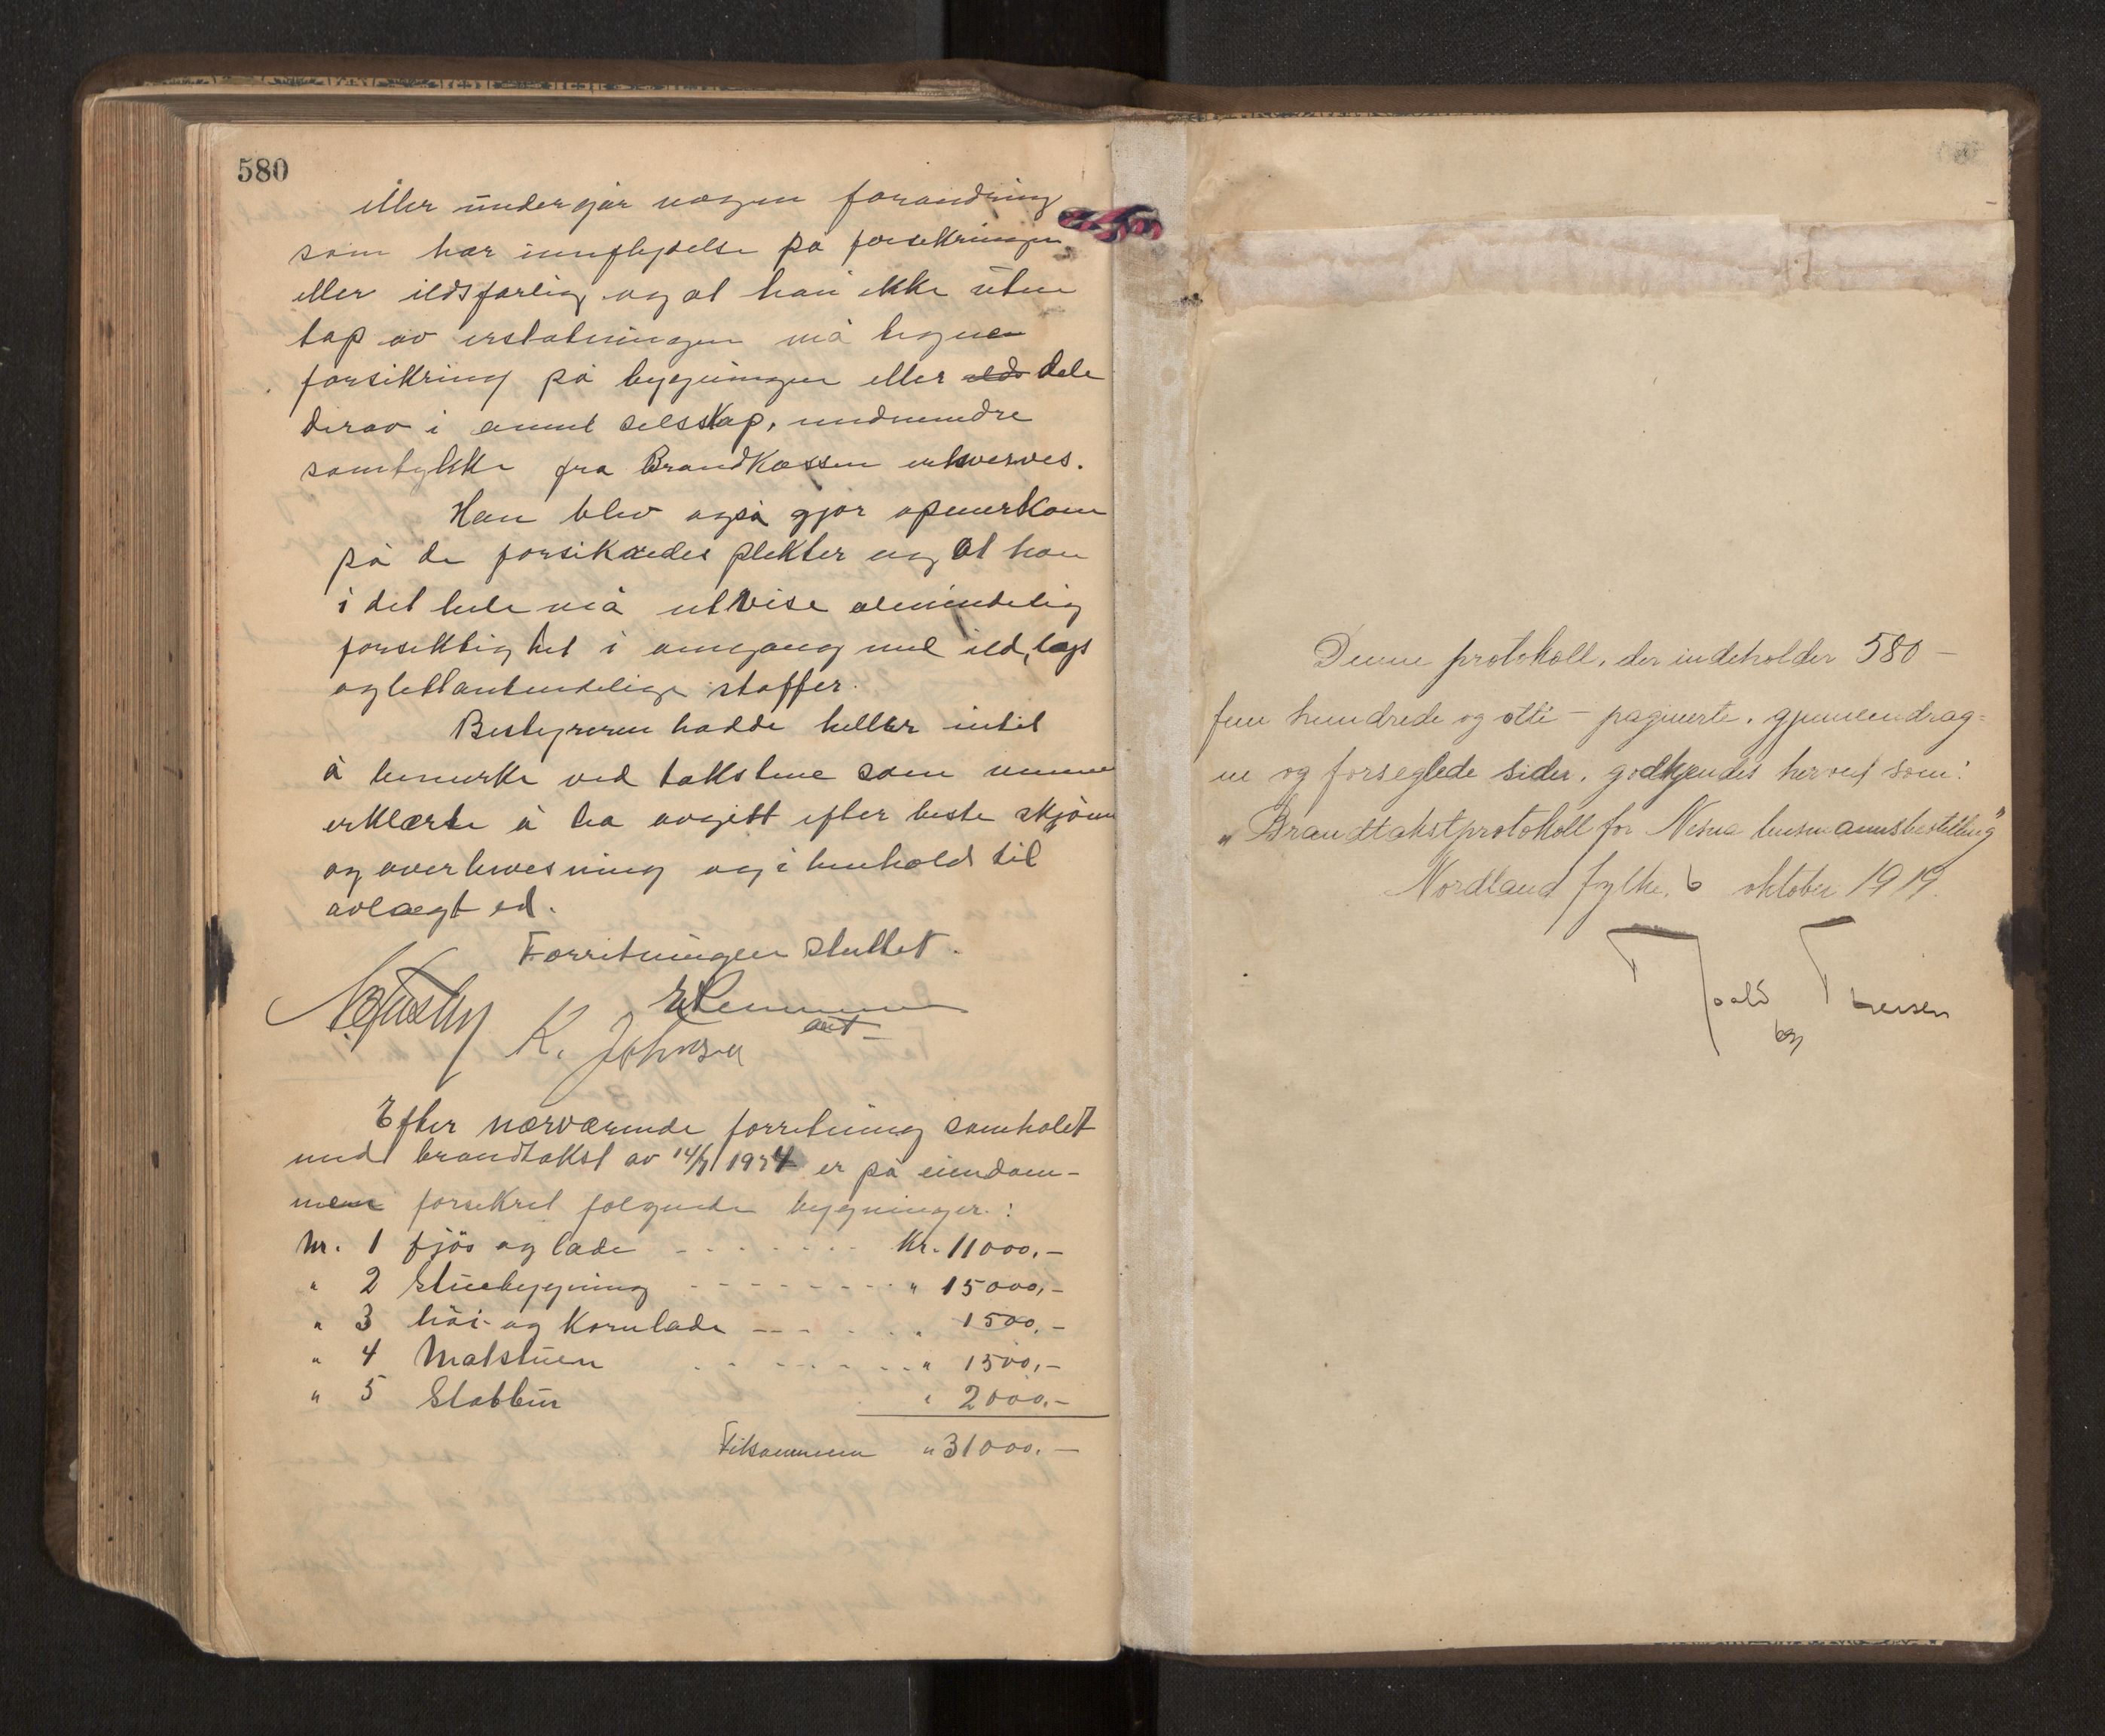 580
eller undergår nogen forandring
som har innflydelse på forsekringen
eller ildsfarlig og at han ikke uten
tap av erstatningen må tegne
forsikring på bygningen eller dele
derav i annet selsskap, undmindre
samtykke fra Brandkassen erhverves.
Han blev også gjor opmerksom
på de forsikredes plekter og at han
i det hele må utvise almindelig
forsiktighet i omgang med ild, lys
og lettantendelige stoffer.
Bestyreren hadde heller intet
å bemerke ved takstene som menne
erklærte å ha avgitt efter beste skjønn
og overbevisning og i henhold til
avlagt ed.
Forretningen sluttet.
K. Johnsen
Efter nærværende forretning samholdt
med brandtakst av 14/7 1924 er på eiendom-
men forsikret følgende bygninger:
Nr. 1 fjös og lade - - - - - - Kr. 11000.-
" 2 Stuebygning - - - - - - - - " 15000,-
" 3 höi- og Kornlade - - - - - " 1500.-
" 4 Matstuen - - - - - - - " 1500,-
" 5 Stabbur " 2000.-
Tilsammen " 31000.-
Denne protokoll, der indeholder 580 -
fem hundrede og otti - paginerte, gjennemdrag=
ne og forseglede sider, godkjendes herved som:
"Brandtakstprotokoll for Nesna lensmannsbestilling"
Nordland fylke, 6 oktober 1919.